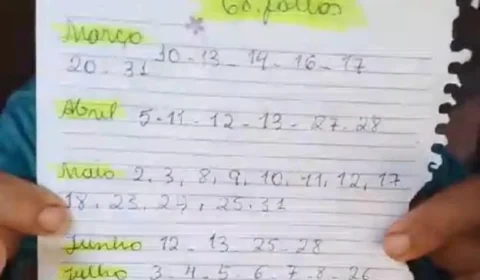 60. faltas
Março 10 - 13 - 14 - 16 - 17
20 - 31
Abril 5 - 11 - 12 - 13 - 27 - 28
Maio 2, 3, 8, 9, 10, 11, 12, 17
18, 23, 24, 25, 31
Junho 12 - 13 25 - 28
Julho 3 - 4 - 5 - 6 - 7 - 8 - 26